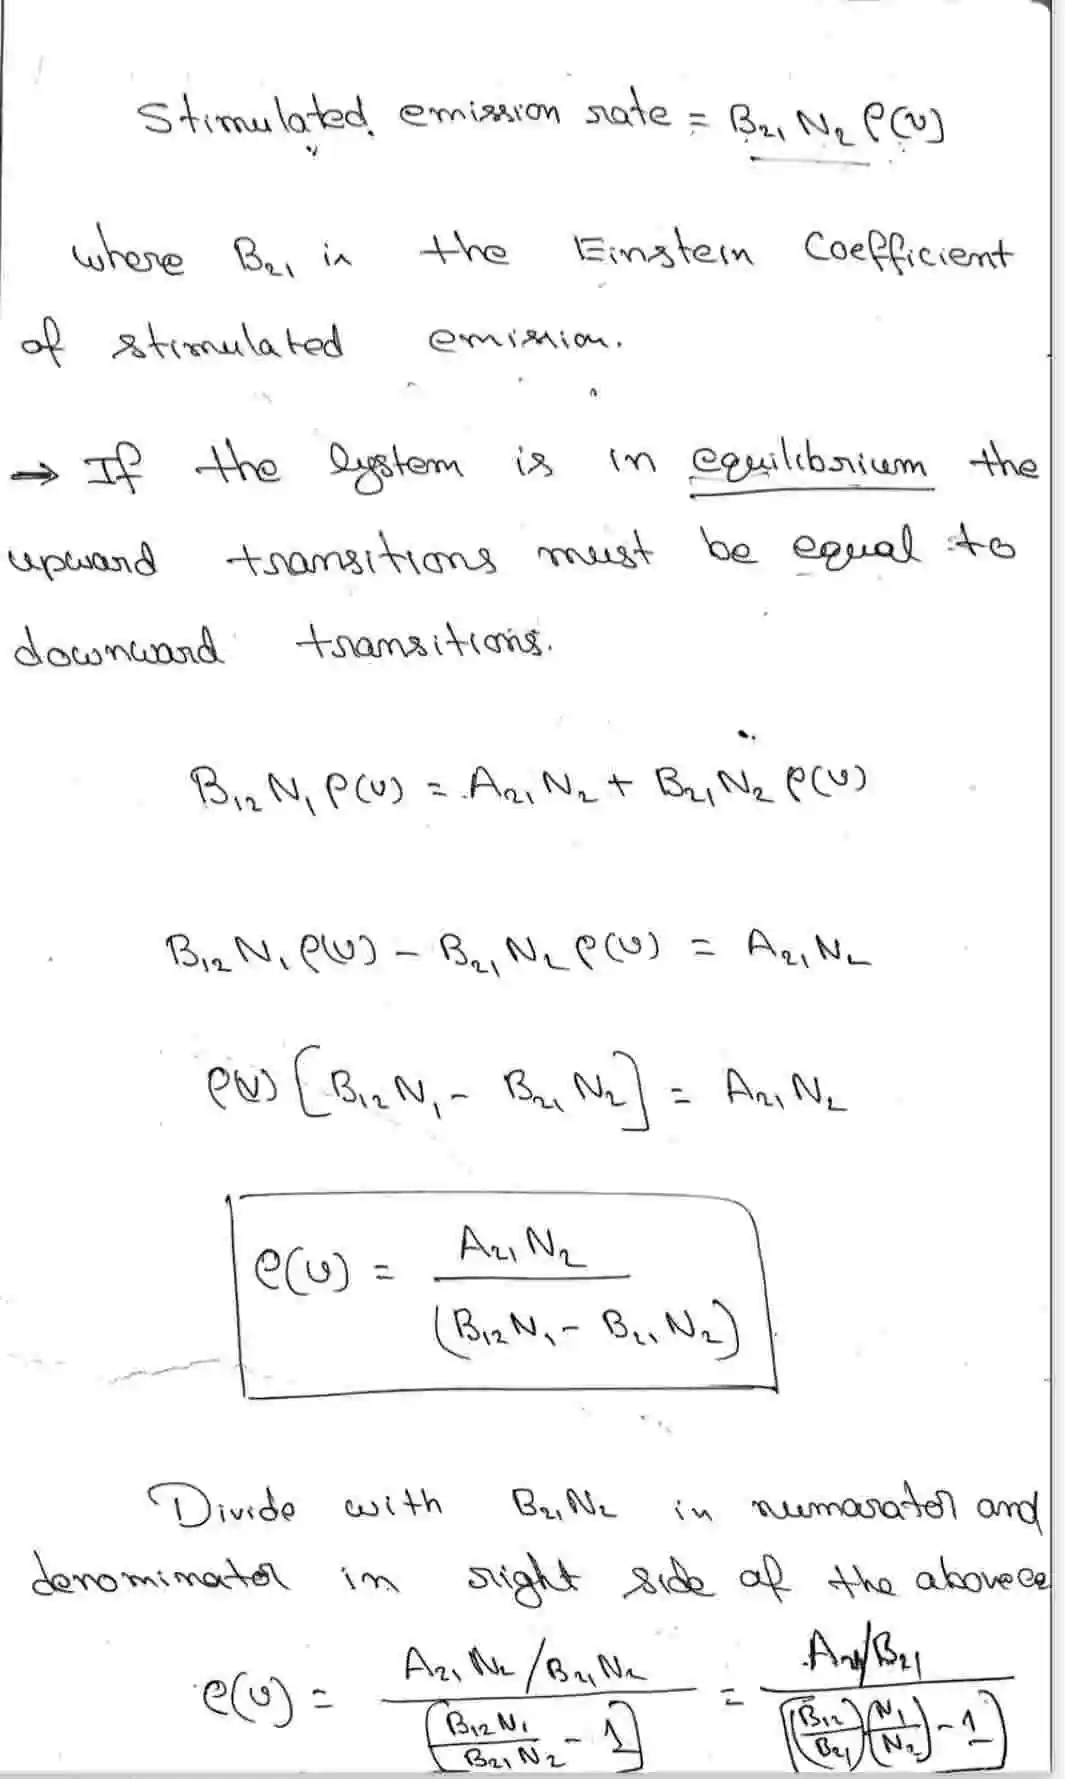 Stimulated emission rate = B₂₁ N₂ ρ(ν)
where B₂₁ is the Einstein Coefficient
of stimulated emission.
→ If the System is in equilibrium the
upward transitions must be equal to
downward transitions.
B₁₂ N₁ ρ(ν) = A₂₁ N₂ + B₂₁ N₂ ρ(ν)
B₁₂ N₁ ρ(ν) - B₂₁ N₂ ρ(ν) = A₂₁ N₂
ρ(ν) [B₁₂ N₁ - B₂₁ N₂] = A₂₁ N₂
ρ(ν) = A₂₁ N₂ / (B₁₂ N₁ - B₂₁ N₂)
Divide with B₂₁ N₂ in numarator and
denominator in right side of the above
ρ(ν) = (A₂₁ N₂ / B₂₁ N₂) / [B₁₂ N₁ / B₂₁ N₂ - 1] = (A₂₁/B₂₁) / [(B₁₂/B₂₁)(N₁/N₂) - 1]